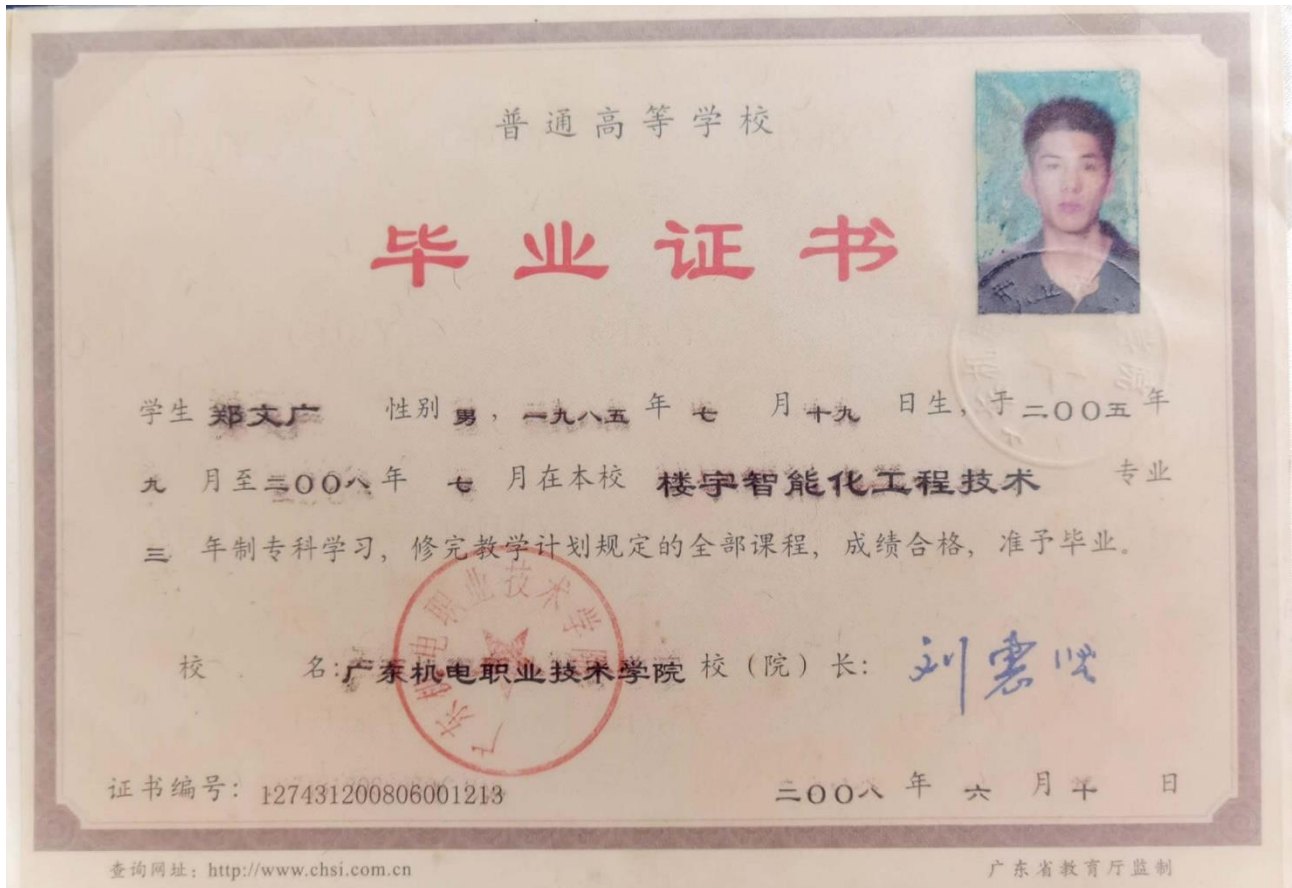 普通高等学校
毕业证书
学生 郑文广 性别 男，一九八五年 七 月 十九 日生，于二〇〇五年
九 月至二〇〇八年 七 月在本校 楼宇智能化工程技术 专业
三 年制专科学习，修完教学计划规定的全部课程，成绩合格，准予毕业。
校 名：广东机电职业技术学院 校（院）长：
广东机电职业技术学院
证书编号：127431200806001213 二〇〇八年 六 月 日
查询网址：http://www.chsi.com.cn 广东省教育厅监制